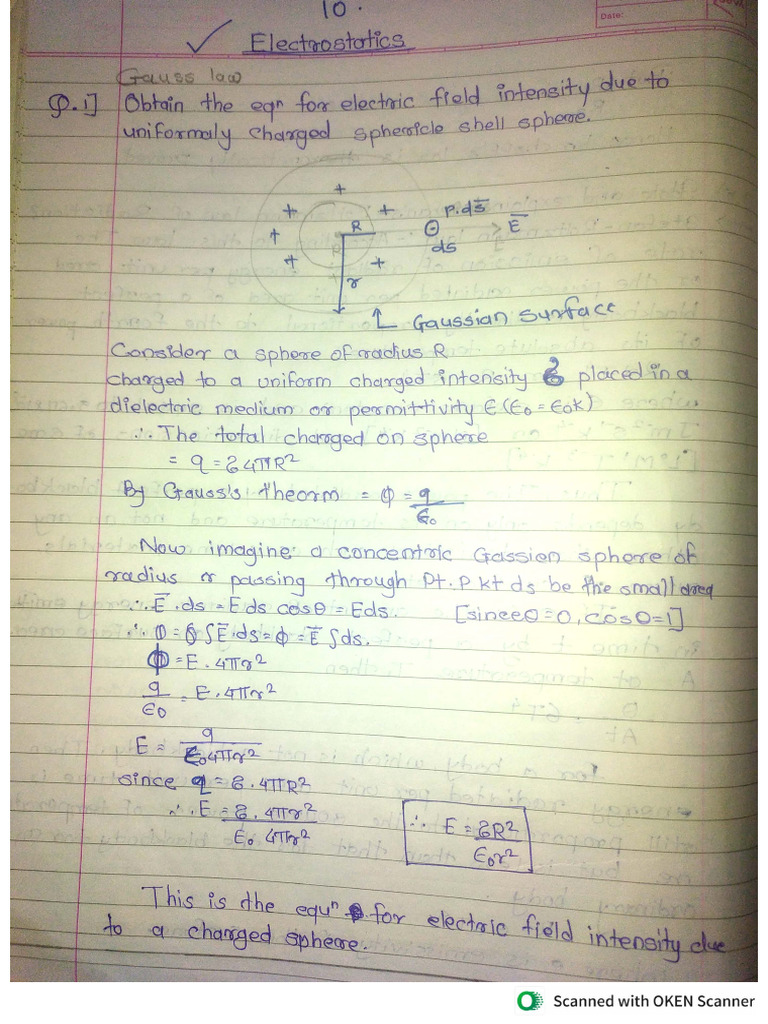 10.
Date:
Electrostatics
Gauss law
Q.1] Obtain the eqn for electric field intensity due to
uniformaly charged sphericle shell sphere.
+
+ + p.ds̅
+ R E̅
ds
+ +
r
Gaussian surface
Consider a sphere of radius R
charged to a uniform charged intensity 6 placed in a
dielectric medium or permittivity ∈ (∈0 = ∈0k)
∴ The total charged on sphere
= q = 6 4πR²
By Gauss's theorm = ϕ = q/∈0
Now imagine a concentric Gassien sphere of
radius r passing through Pt. P kt ds be the small area
∴ E̅.ds = Eds cosθ = Eds. [sinceθ=0, cosθ=1]
∴ ϕ = ∮ ∫E̅.ds = ϕ = E̅ ∫ds.
ϕ = E. 4πr²
q/∈0 = E. 4πr²
E = q/∈04πr²
since q = 6. 4πR²
∴ E = 6. 4πr²/∈0 4πr²
∴ E = 6R²/∈0r²
This is the equn for electric field intensity due
to a charged sphere.
Scanned with OKEN Scanner